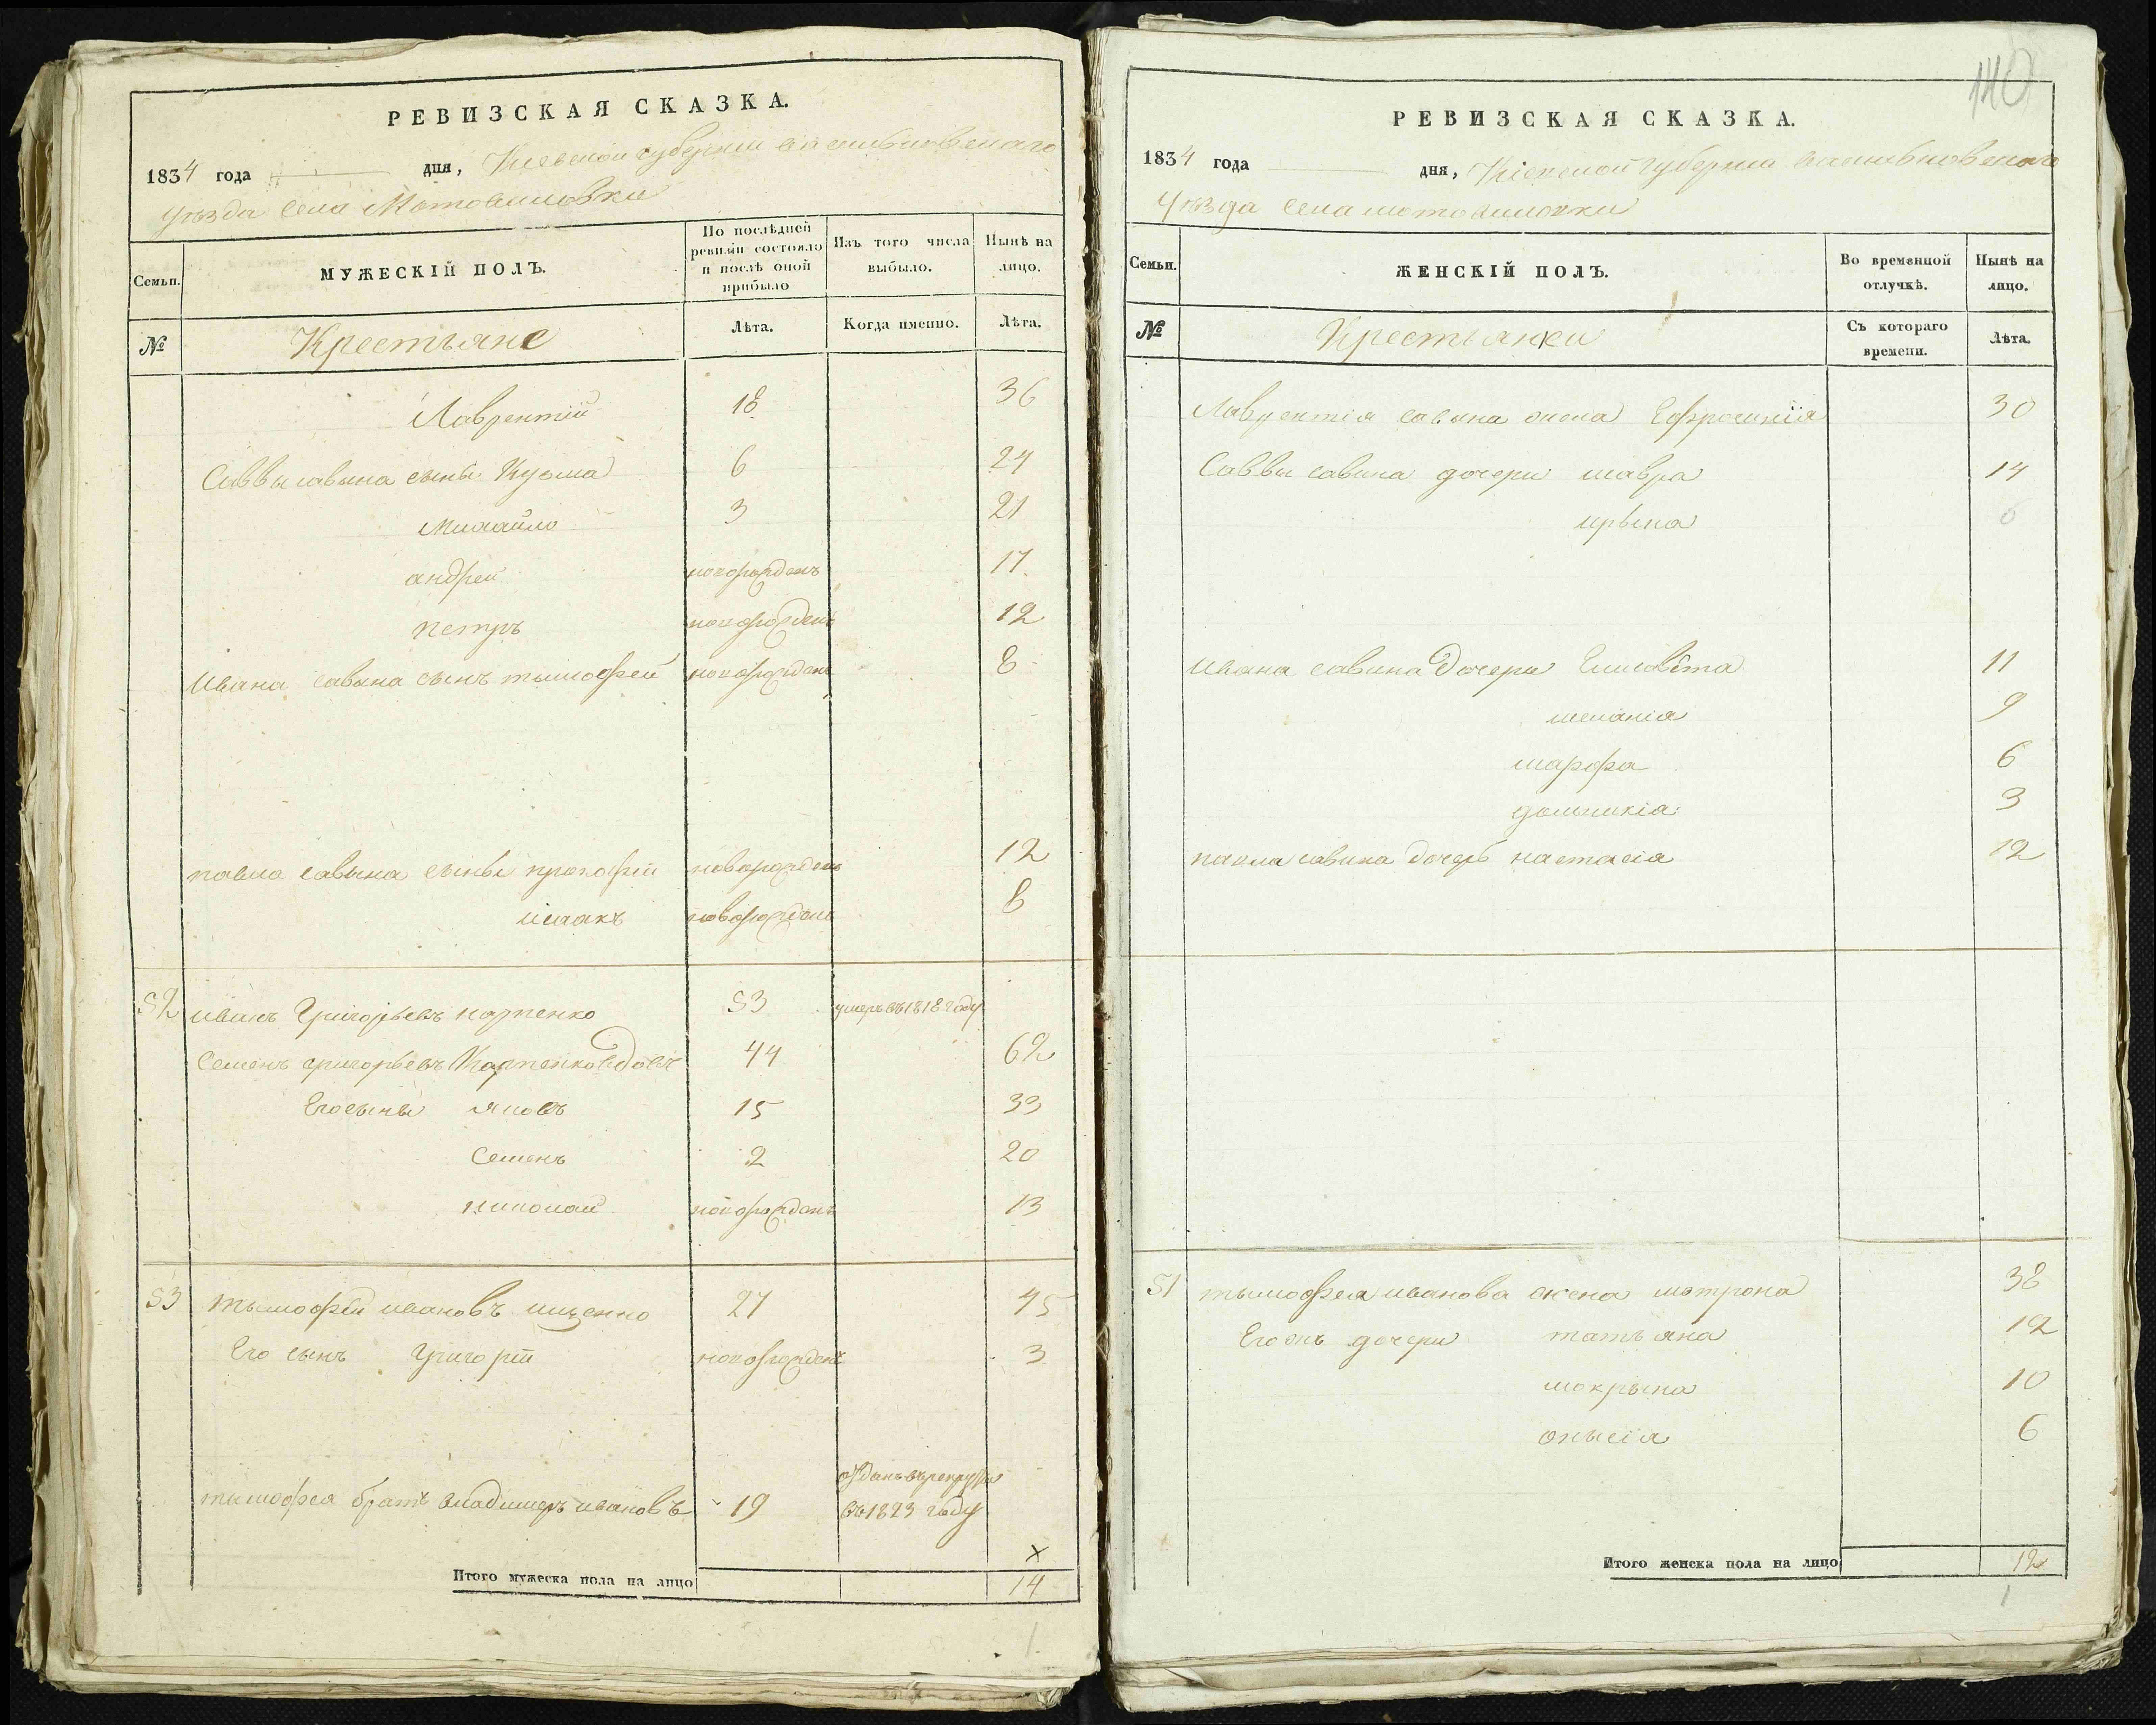 РЕВИЗСКАЯ СКАЗКА.
1834 года дня, Киевской губернии васильковского
уѣзда села Мотовиловки
Семьи.
МУЖЕСКІЙ ПОЛЪ.
По послѣдней ревизіи состояло и послѣ оной прибыло
Изъ того числа выбыло.
Нынѣ на лицо.
№
Крестьяне
Лѣта.
Когда именно.
Лѣта.
Лаврентій 18 36
Саввы савына сыны Кузма 6 24
Михайло 3 21
андрей новорожденъ 17
петръ новорожденъ 12
Ивана савына сынъ тымофей новорожденъ 8
павла савына сыны прокофій новорожденъ 12
исаакъ новорожденъ 8
52 иванъ Григорьевъ карпенко 53 умеръ въ 1818 году
Семенъ григорьевъ Карпенко вдовъ 44 62
Его сыны яковъ 15 33
Семенъ 2 20
николай новорожденъ 13
53 тымофій ивановъ ищенко 27 45
Его сынъ Григорій новорожденъ 3
отданъ врекруты
тымофея братъ владимеръ ивановъ 19 въ 1823 году
Итого мужеска пола на лицо 14
140
РЕВИЗСКАЯ СКАЗКА.
1834 года дня, Кіевской губерніи васильковского
Уѣзда села мотовиловки
Семьи.
ЖЕНСКІЙ ПОЛЪ.
Во временной отлучкѣ.
Нынѣ на лицо.
№
Крестьянки
Съ котораго времени.
Лѣта.
Лаврентія савына жена Ефросинія 30
Саввы савина дочери мавра 14
ирына 6
Ивана савина дочери Елисавета 11
меланія 9
марфа 6
домникія 3
павла савина дочерь настасія 12
51 тымофея иванова жена матрона 38
Его онъ дочери татьяна 12
мокрына 10
онысія 6
Итого женска пола на лицо 12